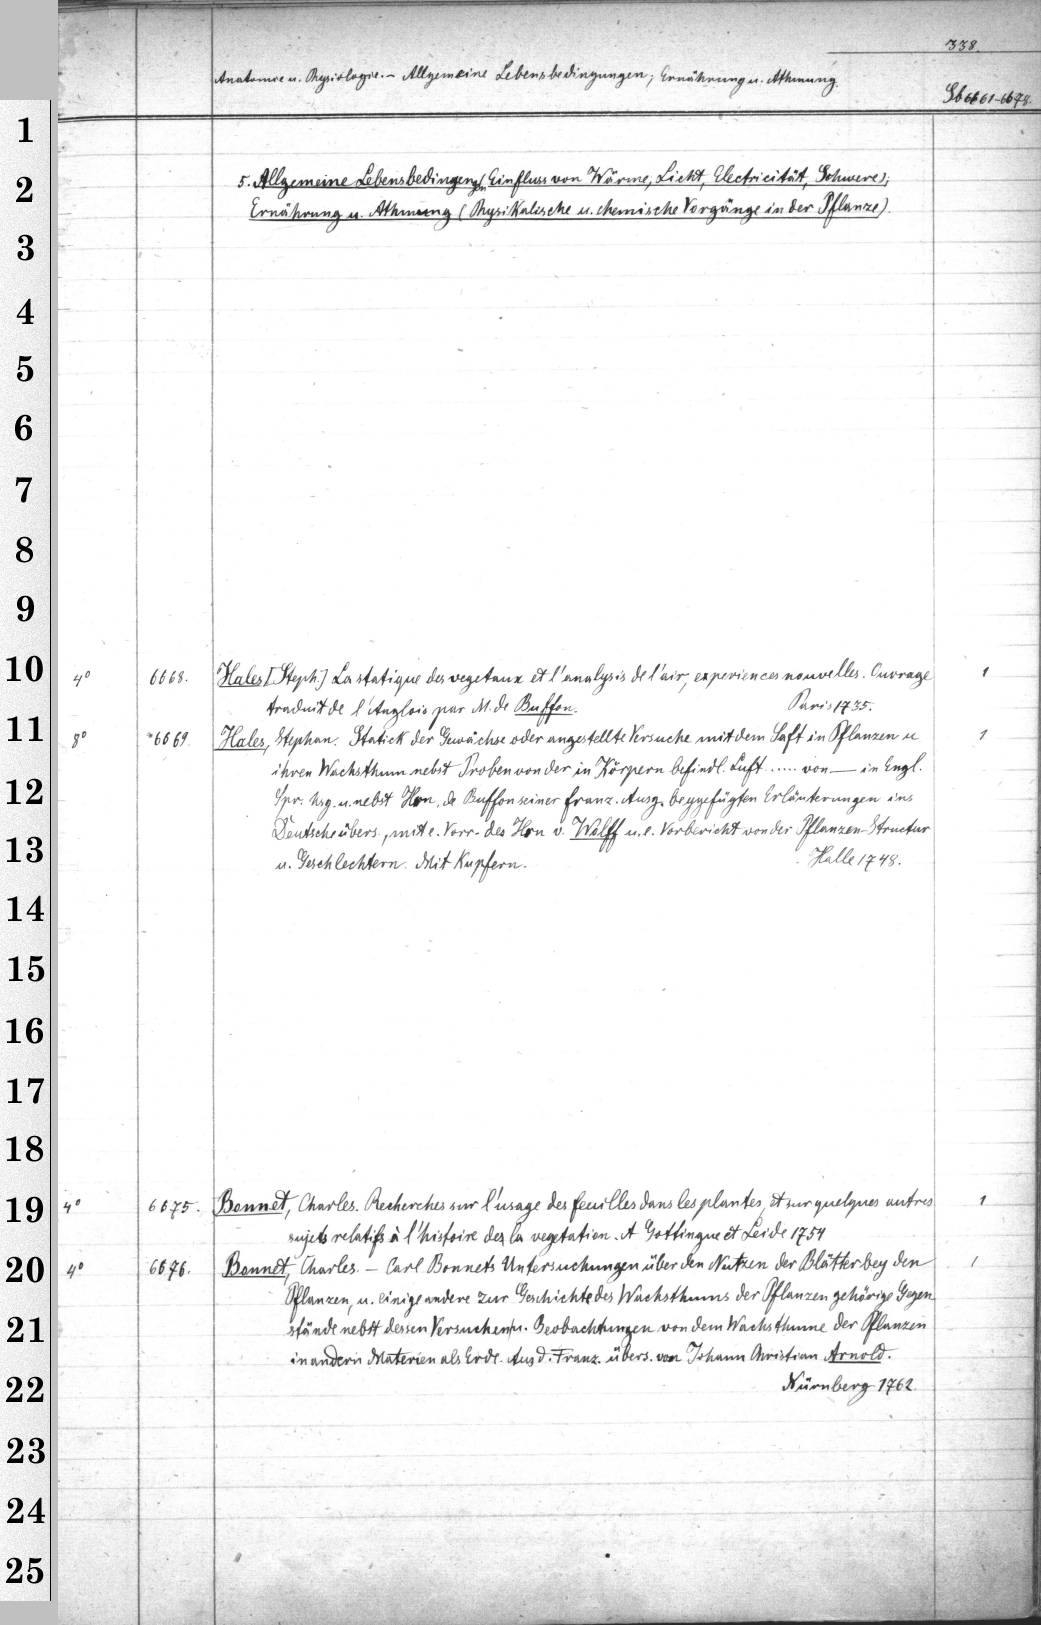 338.
Anatomie u. Physiologie. – Allgemeine Lebensbedingungen; Ernährung u. Athmung.
Sb 6661-6678.
1
2
5. Allgemeine Lebensbedingungen (Einfluss von Wärme, Licht, Electricität, Schwere);
Ernährung u. Athmung (Physikalische u. chemische Vorgänge in der Pflanze).
3
4
5
6
7
8
9
10
4° 6668. Hales [Steph.] La statique des vegetaux et l'analysis de l'air, experiences nouvelles. Ouvrage 1
traduit de l'Anglois par M. de Buffon. Paris 1735.
11
8° *6669. Hales, Stephan. Statick der Gewächse oder angestellte Versuche mit dem Saft in Pflanzen u 1
ihren Wachsthum nebst Proben von der in Körpern befindl. Luft ..... von — in Engl.
12
Spr. hsg. u. nebst Hrn. de Buffon seiner franz. Ausg. beygefügten Erläuterungen ins
Deutsche übers., mit e. Vorr. des Hrn v. Wolff u. e. Vorbericht von der Pflanzen-Structur
13
u. Geschlechtern. Mit Kupfern. Halle 1748.
14
15
16
17
18
19
4° 6675. Bonnet, Charles. Recherches sur l'usage des feuilles dans les plantes, et sur quelques autres 1
sujets relatifs à l'histoire de la vegetation. A Gottingue et Leide 1754
20
4° 6676. Bonnet, Charles. – Carl Bonnets Untersuchungen über den Nutzen der Blätter bey den 1
Pflanzen, u. einige andere zur Geschichte des Wachsthums der Pflanzen gehörige Gegen
21
stände nebst dessen Versuchen u. Beobachtungen von dem Wachsthume der Pflanzen
in andern Materien als Erde. Aus d. Franz. übers. von Johann Christian Arnold.
22
Nürnberg 1762.
23
24
25